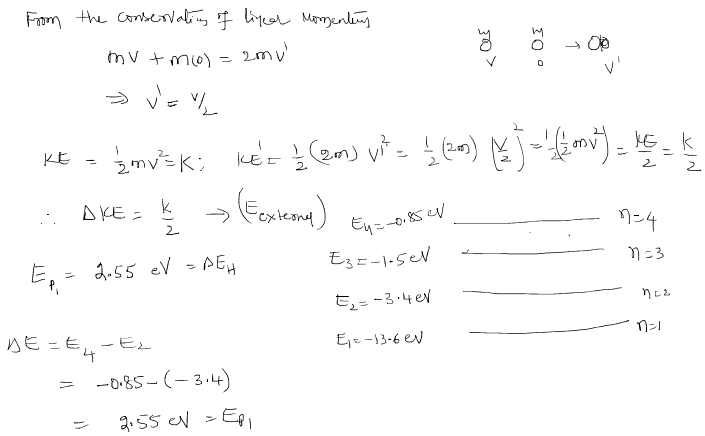 From the conservation of linear momentum
m m
V 0 → V'
mv + m(0) = 2mv'
⇒ v' = v/2
KE = 1/2 mv² = K; KE' = 1/2 (2m) v'² = 1/2 (2m) (v/2)² = 1/2 (1/2 mv²) = KE/2 = K/2
∴ ΔKE = K/2 → (E external)
E₄ = -0.85 eV n=4
E₃ = -1.5 eV n=3
E_P₁ = 2.55 eV = ΔE_H
E₂ = -3.4 eV n=2
E₁ = -13.6 eV n=1
ΔE = E₄ - E₂
= -0.85 - (-3.4)
= 2.55 eV = E_P₁